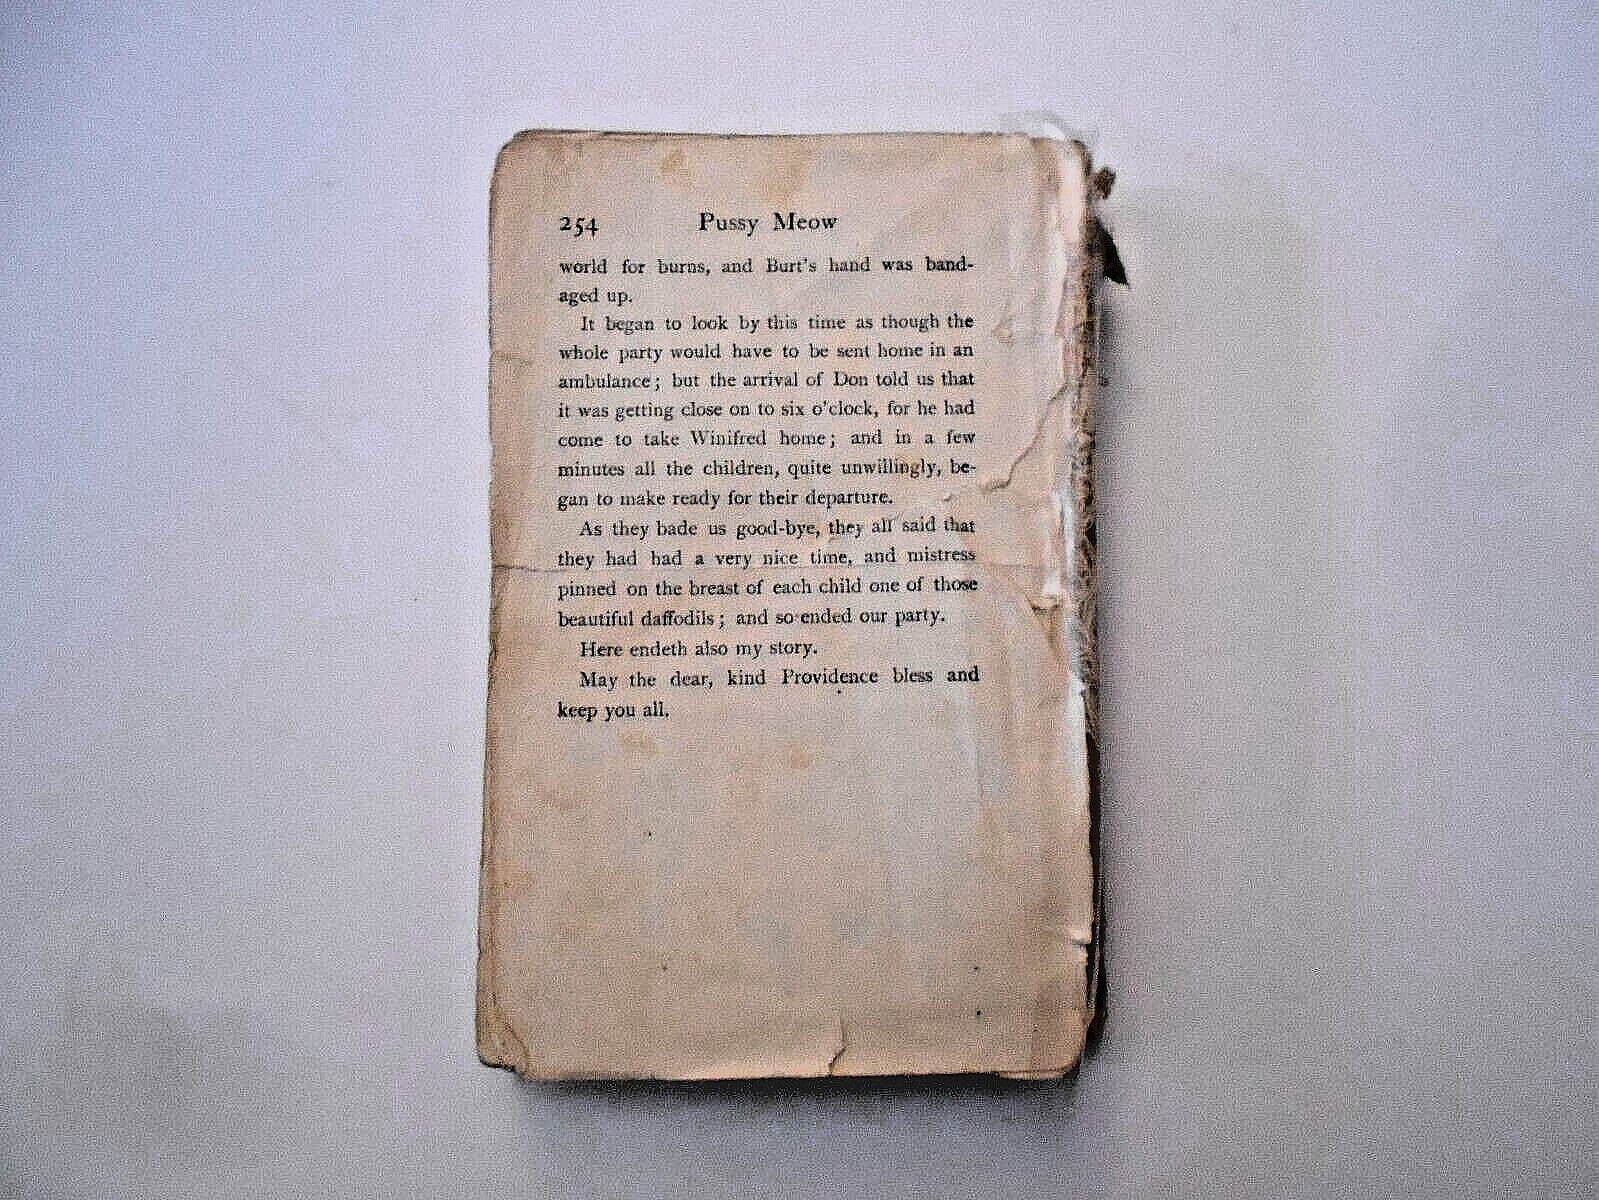 254 Pussy Meow
world for burns, and Burt's hand was band-
aged up.
It began to look by this time as though the
whole party would have to be sent home in an
ambulance; but the arrival of Don told us that
it was getting close on to six o'clock, for he had
come to take Winifred home; and in a few
minutes all the children, quite unwillingly, be-
gan to make ready for their departure.
As they bade us good-bye, they all said that
they had had a very nice time, and mistress
pinned on the breast of each child one of those
beautiful daffodils; and so ended our party.
Here endeth also my story.
May the dear, kind Providence bless and
keep you all.